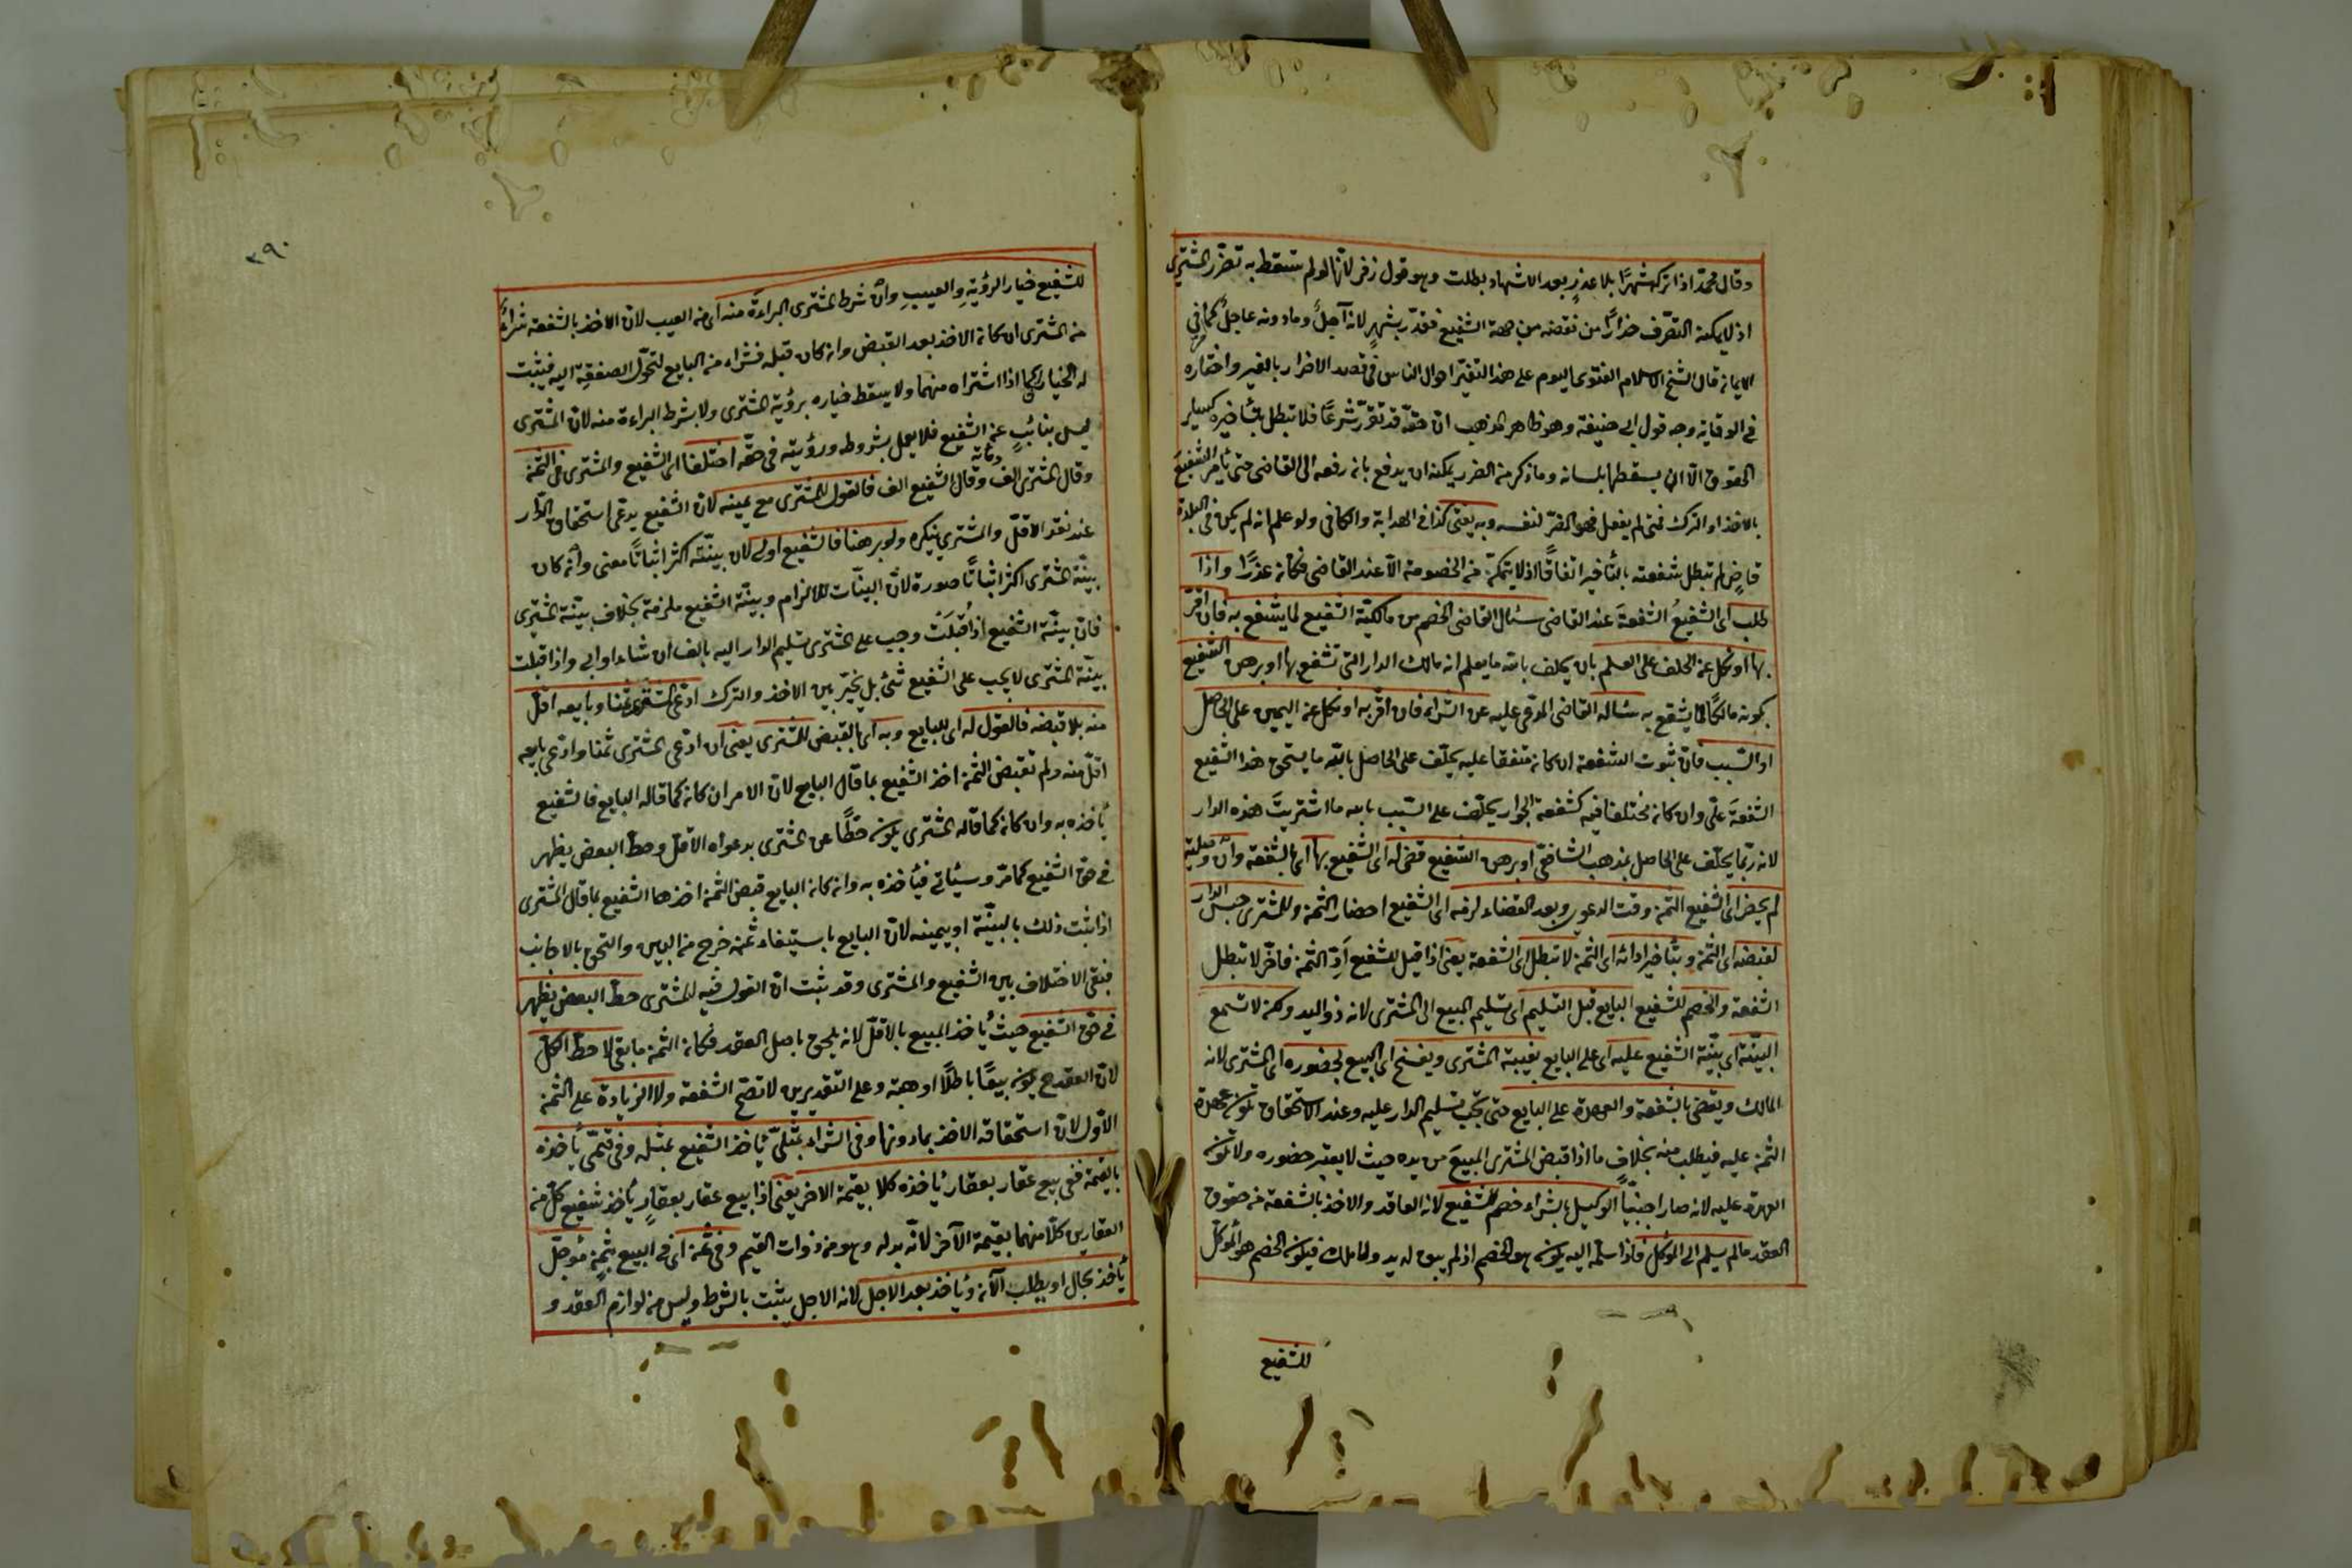 وقال محمد اذا ترك شهرًا بلا عذرٍ بعد الاشهاد بطلت وهو قول زفر لانها لو لم تسقط به تضرّر المشترى
اذ لا يمكنه التصرّف حذارًا من نقضه من جهة الشفيع فقدّر بشهرٍ لانه آجلٌ وما دونه عاجلٌ كما فى
الايمان قال الشيخ الاسلام الفتوى اليوم على هذا التغيّر احوال الناس فى قصد الاضرار بالغير واختاره
فى الوقاية وجه قول ابى حنيفة وهو ظاهر المذهب انّ حقّه قد تقرّر شرعًا فلا تبطل بتأخيره كسائر
الحقوق الّا ان يسقطها بلسانه وما ذكر من الضرر يمكنه ان يدفع بان رفعه الى القاضى حتى يأمر الشفيع
بالاخذ او الترك فمتى لم يفعل فهو المضرّ لنفسه وبه يفتى كذا فى الهداية والكافى ولو علم انه لم يكن فى البلدة
قاضٍ لم تبطل شفعته بالتأخير اتفاقًا اذ لا يتمكّن من الخصومة الّا عند القاضى فكان عذرًا واذا
طلب اى الشفيعُ الشفعةَ عند القاضى سئال القاضى الخصم من مالكيّة الشفيع لما يشفع به فان اقرّ
بها او نكل عن الحلف على العلم بان يحلف بالله ما يعلم انه مالك الدار التى تشفع بها او برهن الشفيع
بكونه مالكًا لما يشفع به سئاله القاضى المدّعى عليه عن الشراء فان اقرّ به او نكل عن اليمين على الحاصل
او السّبب فان ثبوت الشفعة ان كان متفقا عليه يحلّف على الحاصل بالله ما يستحق هذا الشفيع
الشفعةَ علىّ وان كان مختلفا فيه كشفعة الجوار يحلّف على السّبب بالله ما اشتريتَ هذه الدار
لانه ربّما يحلّف على الحاصل بمذهب الشافعى او برهن الشفيع قضى له اى الشفيع بها اى الشفعة وان وصلية
لم يحضر اى الشفيع الثمن وقت الدعوى وبعد القضاء لزمه اى الشفيع احضار الثمن وللمشترى حبس الدار
لقبضه اى الثمن وبتأخير ادائه اى الثمن لا تبطل اى الشفعة يعنى اذا قيل للشفيع اَدِّ الثمن فاخّر لا تبطل
الشفعة والخصم للشفيع البايع قبل التسليم اى تسليم المبيع الى المشترى لانه ذو اليد ولكن لا تسمع
البيّنة اى بيّنة الشفيع عليه اى على البايع بغيبة المشترى ويفسخ اى البيع بحضوره اى المشترى لانه
المالك ويقضى بالشفعة والعهدة على البايع حتى يجب تسليم الدار عليه وعند الاستحقاق تكون عهدة
الثمن عليه فيطلب منه بخلاف ما اذا قبض المشترى المبيعَ من يده حيث لا يعتبر حضوره ولا تكون
العهدة عليه لانه صار اجنبيًّا الوكيل بشراء خصم للشفيع لانه العاقد والاخذ بالشفعة من حقوق
العقد ما لم يسلم الى الموكّل فاذا سلّم اليه يكون هو الخصم اذ لم يبق له يد ولا ملك فيكون الخصم هو الموكّل
للشفيع
٣٩٠
للشفيع خيار الرؤيةِ والعيبِ وان شرط المشترى البراءة منه اى من العيب لان الاخذ بالشفعة شراءٌ
من المشترى ان كان الاخذ بعد القبض وان كان قبله فشراء من البايع لتحوّل الصفقة اليه فيثبت
له الخيار كما اذا اشتراه منهما ولا يسقط خياره برؤية المشترى ولا بشرط البراءة منه لان المشترى
ليس بنائبٍ عن الشفيع فلا يعمل بشروطه ورؤيته فى حقّه اختلفا اى الشفيع والمشترى فى الثمن
وقال المشترى الف ومائة وقال الشفيع الف فالقول للمشترى مع يمينه لان الشفيع يدعى استحقاق الدّار
عند نقد الاقلّ والمشترى ينكره ولو برهنا فالشفيع اولى لان بيّنته اكثر اثباتًا معنى وان كان
بيّنة المشترى اكثر اثباتًا صورة لانّ البيّنات للالزام وبيّنة الشفيع ملزمة بخلاف بيّنة المشترى
فان بيّنة الشفيع اذا قُبلَت وجب على المشترى تسليم الدار اليه بالف ان شاء او ابى واذا قبلت
بيّنة المشترى لا يجب على الشفيع شئ بل يُخيّر بين الاخذ والترك ادّعى المشترى ثمنا وبايعه اقلّ
منه بلا قبضه فالقول له اى للبايع وبه اى بالقبض للمشترى يعنى ان ادّعى المشترى ثمنا وادّعى بايعه
اقلّ منه ولم تقبض الثمن اخذ الشفيع بما قال البايع لانّ الامر ان كان كما قاله البايع فالشفيع
يأخذه به وان كان كما قاله المشترى يكون حطًّا عن المشترى بدعواه الاقلّ وحطّ البعض يظهر
فى حق الشفيع كما مرّ وسيئاتى فيأخذه به وان كان البايع قبض الثمن اخذها الشفيع بما قال المشترى
اذا ثبت ذلك بالبيّنة او بيمينه لانّ البايع باستيفاء ثمنه خرج من البين والتحق بالاجانب
فبقى الاختلاف بين الشفيع والمشترى وقد ثبت انّ القول فيه للمشترى حطّ البعض يظهر
فى حق الشفيع حيث يأخذ المبيع بالاقلّ لانه يلحق باصل العقد فكان الثمن ما بقى لا حطّ الكلّ
لان العقد ح يكون بيعًا باطلًا او هبة وعلى التقديرين لا تصحّ الشفعة ولا الزيادة على الثمن
الاوّل لان استحقاقه الاخذ بما دونها وفى الشراء بمثلىّ يأخذ الشفيع بمثله وفى قيمىّ يأخذه
بالقيمة ففى بيع عقار بعقار يأخذه كلا بقيمة الاخر يعنى اذا بيع عقار بعقارٍ يأخذ شفيع كلّ من
العقارين كلّا منهما بقيمة الآخر لانّه بدله وهو من ذوات القيم وفى ثمن اى فى البيع بثمنٍ مؤجّل
يأخذ بحال او يطلب الآن ويأخذ بعد الاجل لانه الاجل يثبت بالشرط وليس من لوازم العقد و